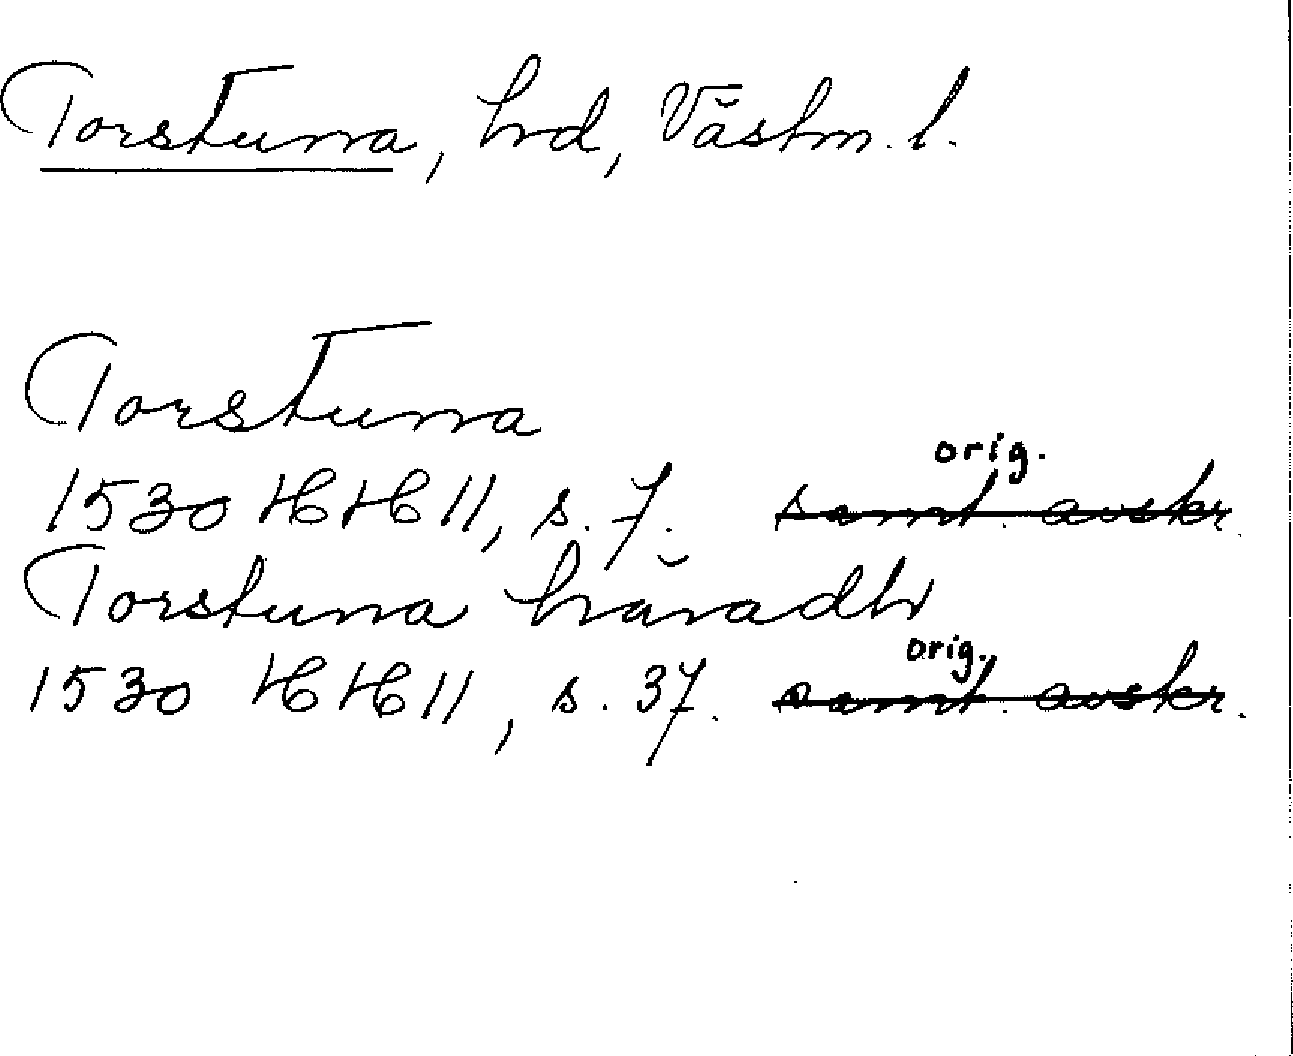 Torstuna, hrd, Västm. l.
Torstuna
orig.
1530 HH 11, s. 7. samt. avskr.
Torstuna häradh
orig.
1530 HH 11, s. 37. samt. avskr.